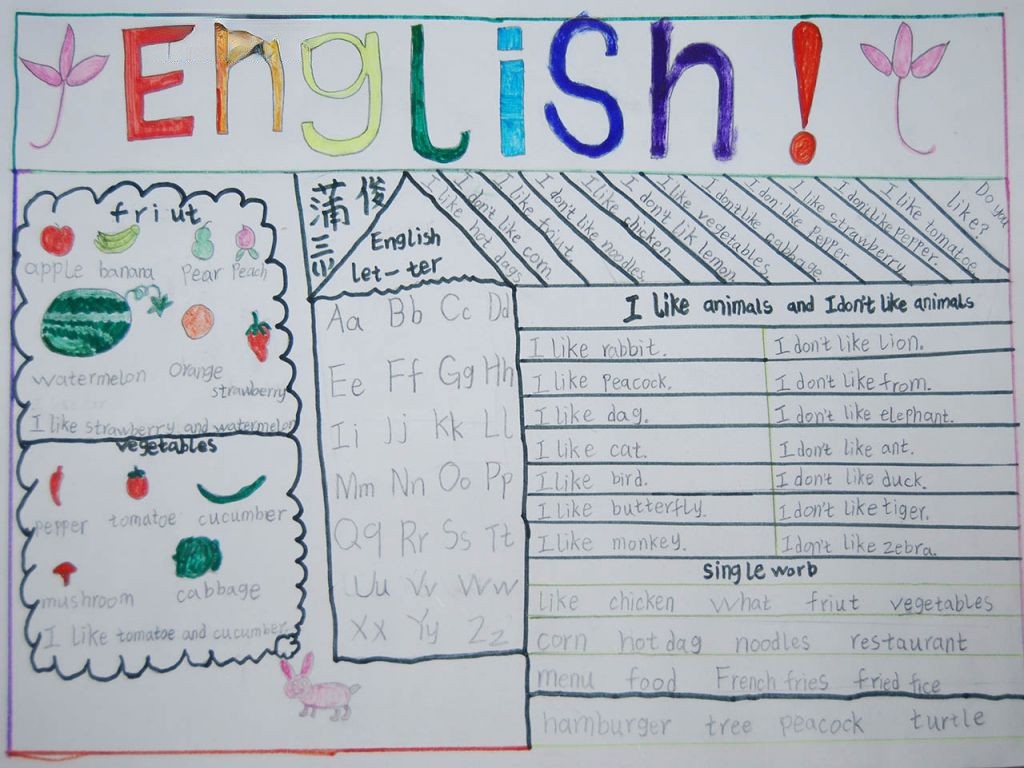 English!
friut
apple banana pear Peach
watermelon Orange strawberry
I like strawberry and watermelon
vegetables
pepper tomatoe cucumber
mushroom cabbage
I like tomatoe and cucumber
蒲俊
三(1)
English
let-ter
Aa Bb Cc Dd
Ee Ff Gg Hh
Ii Jj Kk Ll
Mm Nn Oo Pp
Qq Rr Ss Tt
Uu Vv Ww
Xx Yy Zz
I like hot dags
I don't like corn
I like friut
I don't like noodles
I like chicken
I don't lik lemon
I like vegetables
I don't like cabbage
I don' like pepper
I like strawberry
I don't like pepper.
I like tomatoe
Do you like?
I like animals and I don't like animals
I like rabbit. I don't like Lion.
I like peacock. I don't like from.
I like dag. I don't like elephant.
I like cat. I don't like ant.
I like bird. I don't like duck.
I like butterfly. I don't like tiger.
I like monkey. I don't like zebra.
single worb
like chicken what friut vegetables
corn hot dag noodles restaurant
menu food French fries fried fice
hamburger tree peacock turtle